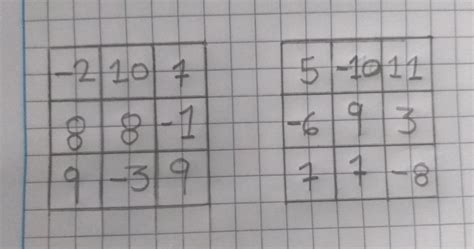 -2 10 7
8 8 -1
9 -3 9
5 -10 11
-6 9 3
7 7 -8